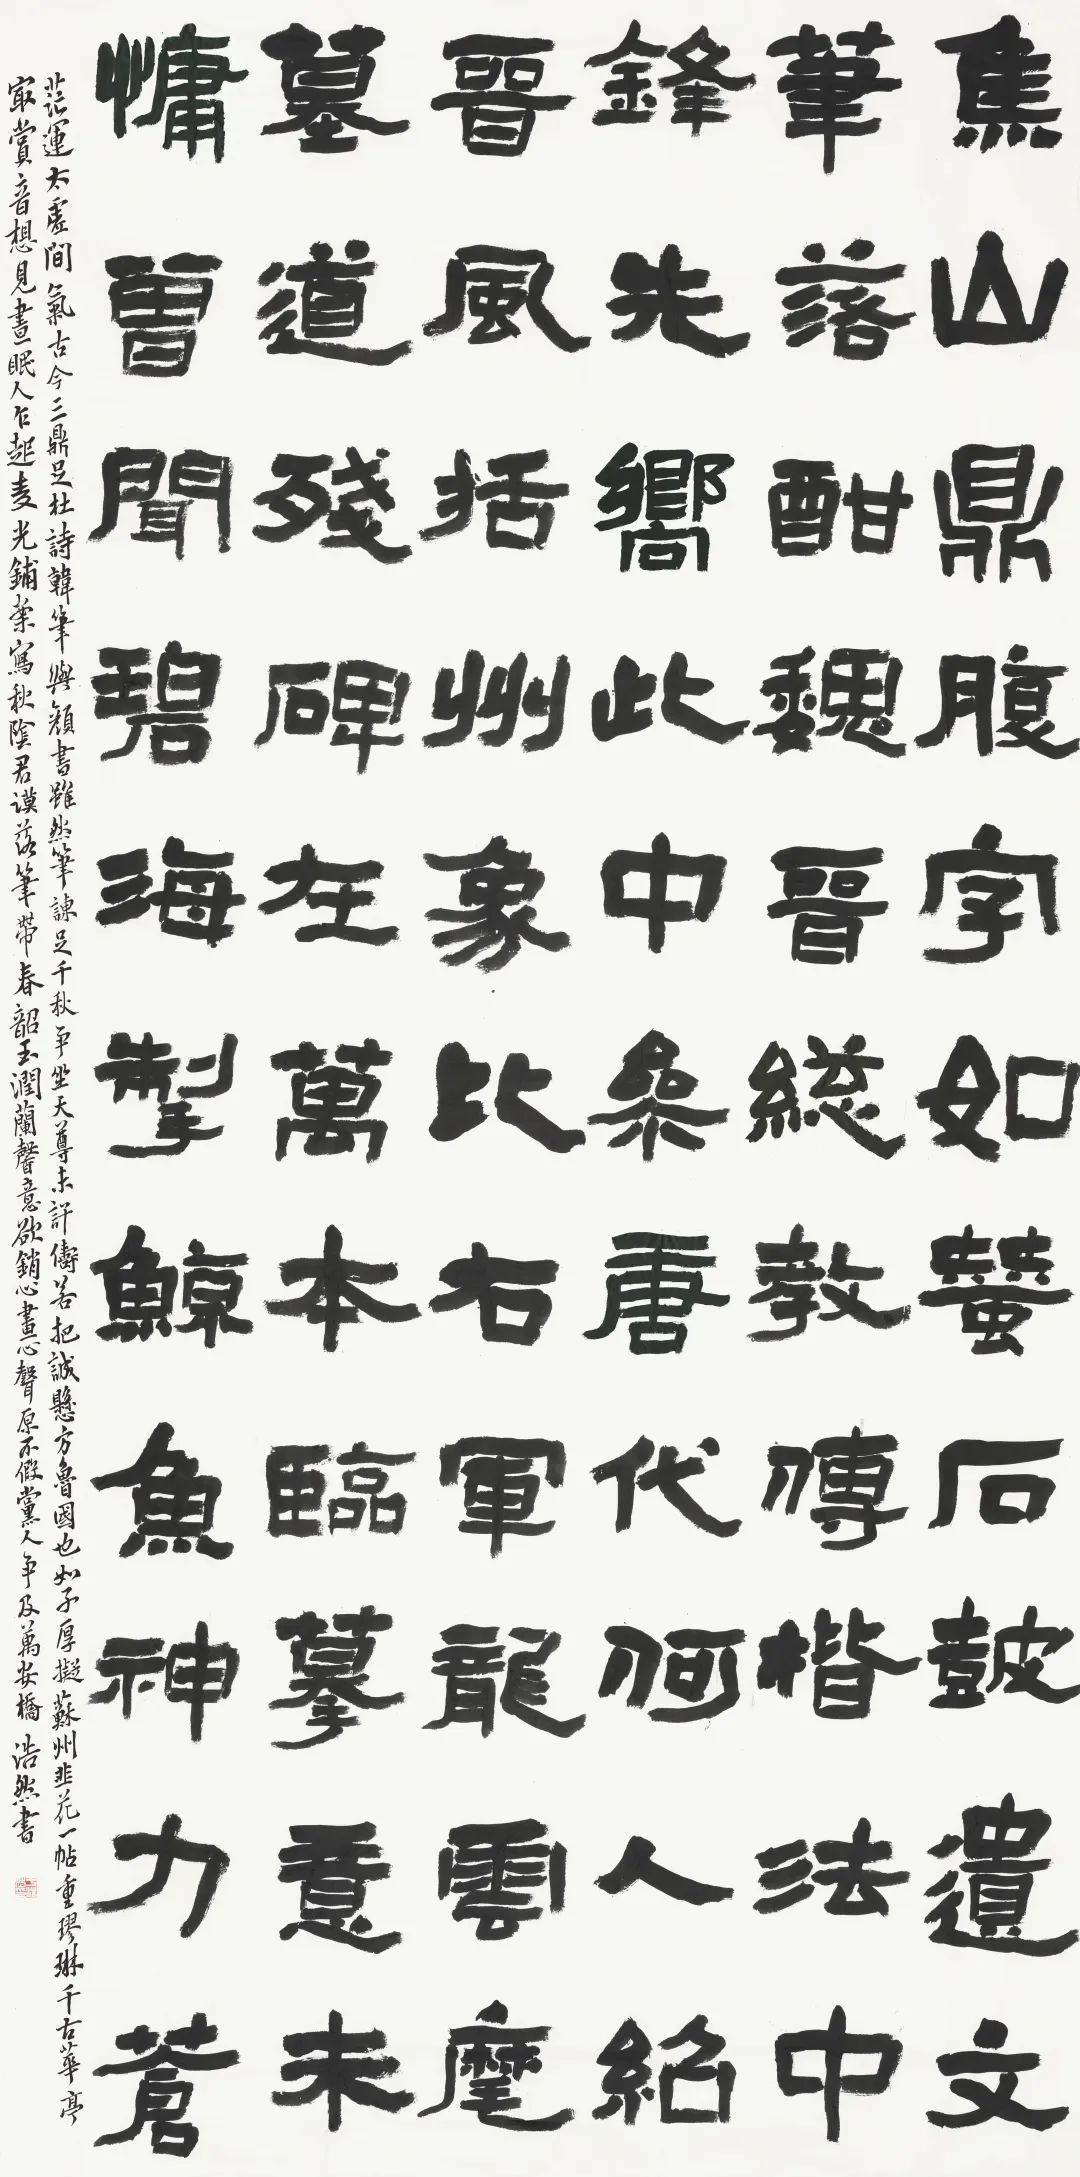 焦山鼎腹字如蠶石鼓遺文
筆落酣魏晉總教傳楷法中
鋒先嚮此中參唐代何人紹
晉風括州象比右軍龍雲麾
墓道殘碑在萬本臨摹意未
慵曾聞碧海掣鯨魚神力蒼
茫運太虛間氣古今三鼎足杜詩韓筆與顏書雖然筆諫足千秋爭坐天尊未許儔若把誠懸方魯國也如子厚擬蘇州韭花一帖重璆琳千古華亭
最賞音想見晝眠人乍起麦光鋪案寫秋陰君謨落筆帶春韶玉潤蘭馨意欲銷心畫心聲原不假黨人爭及萬安橋 浩然書